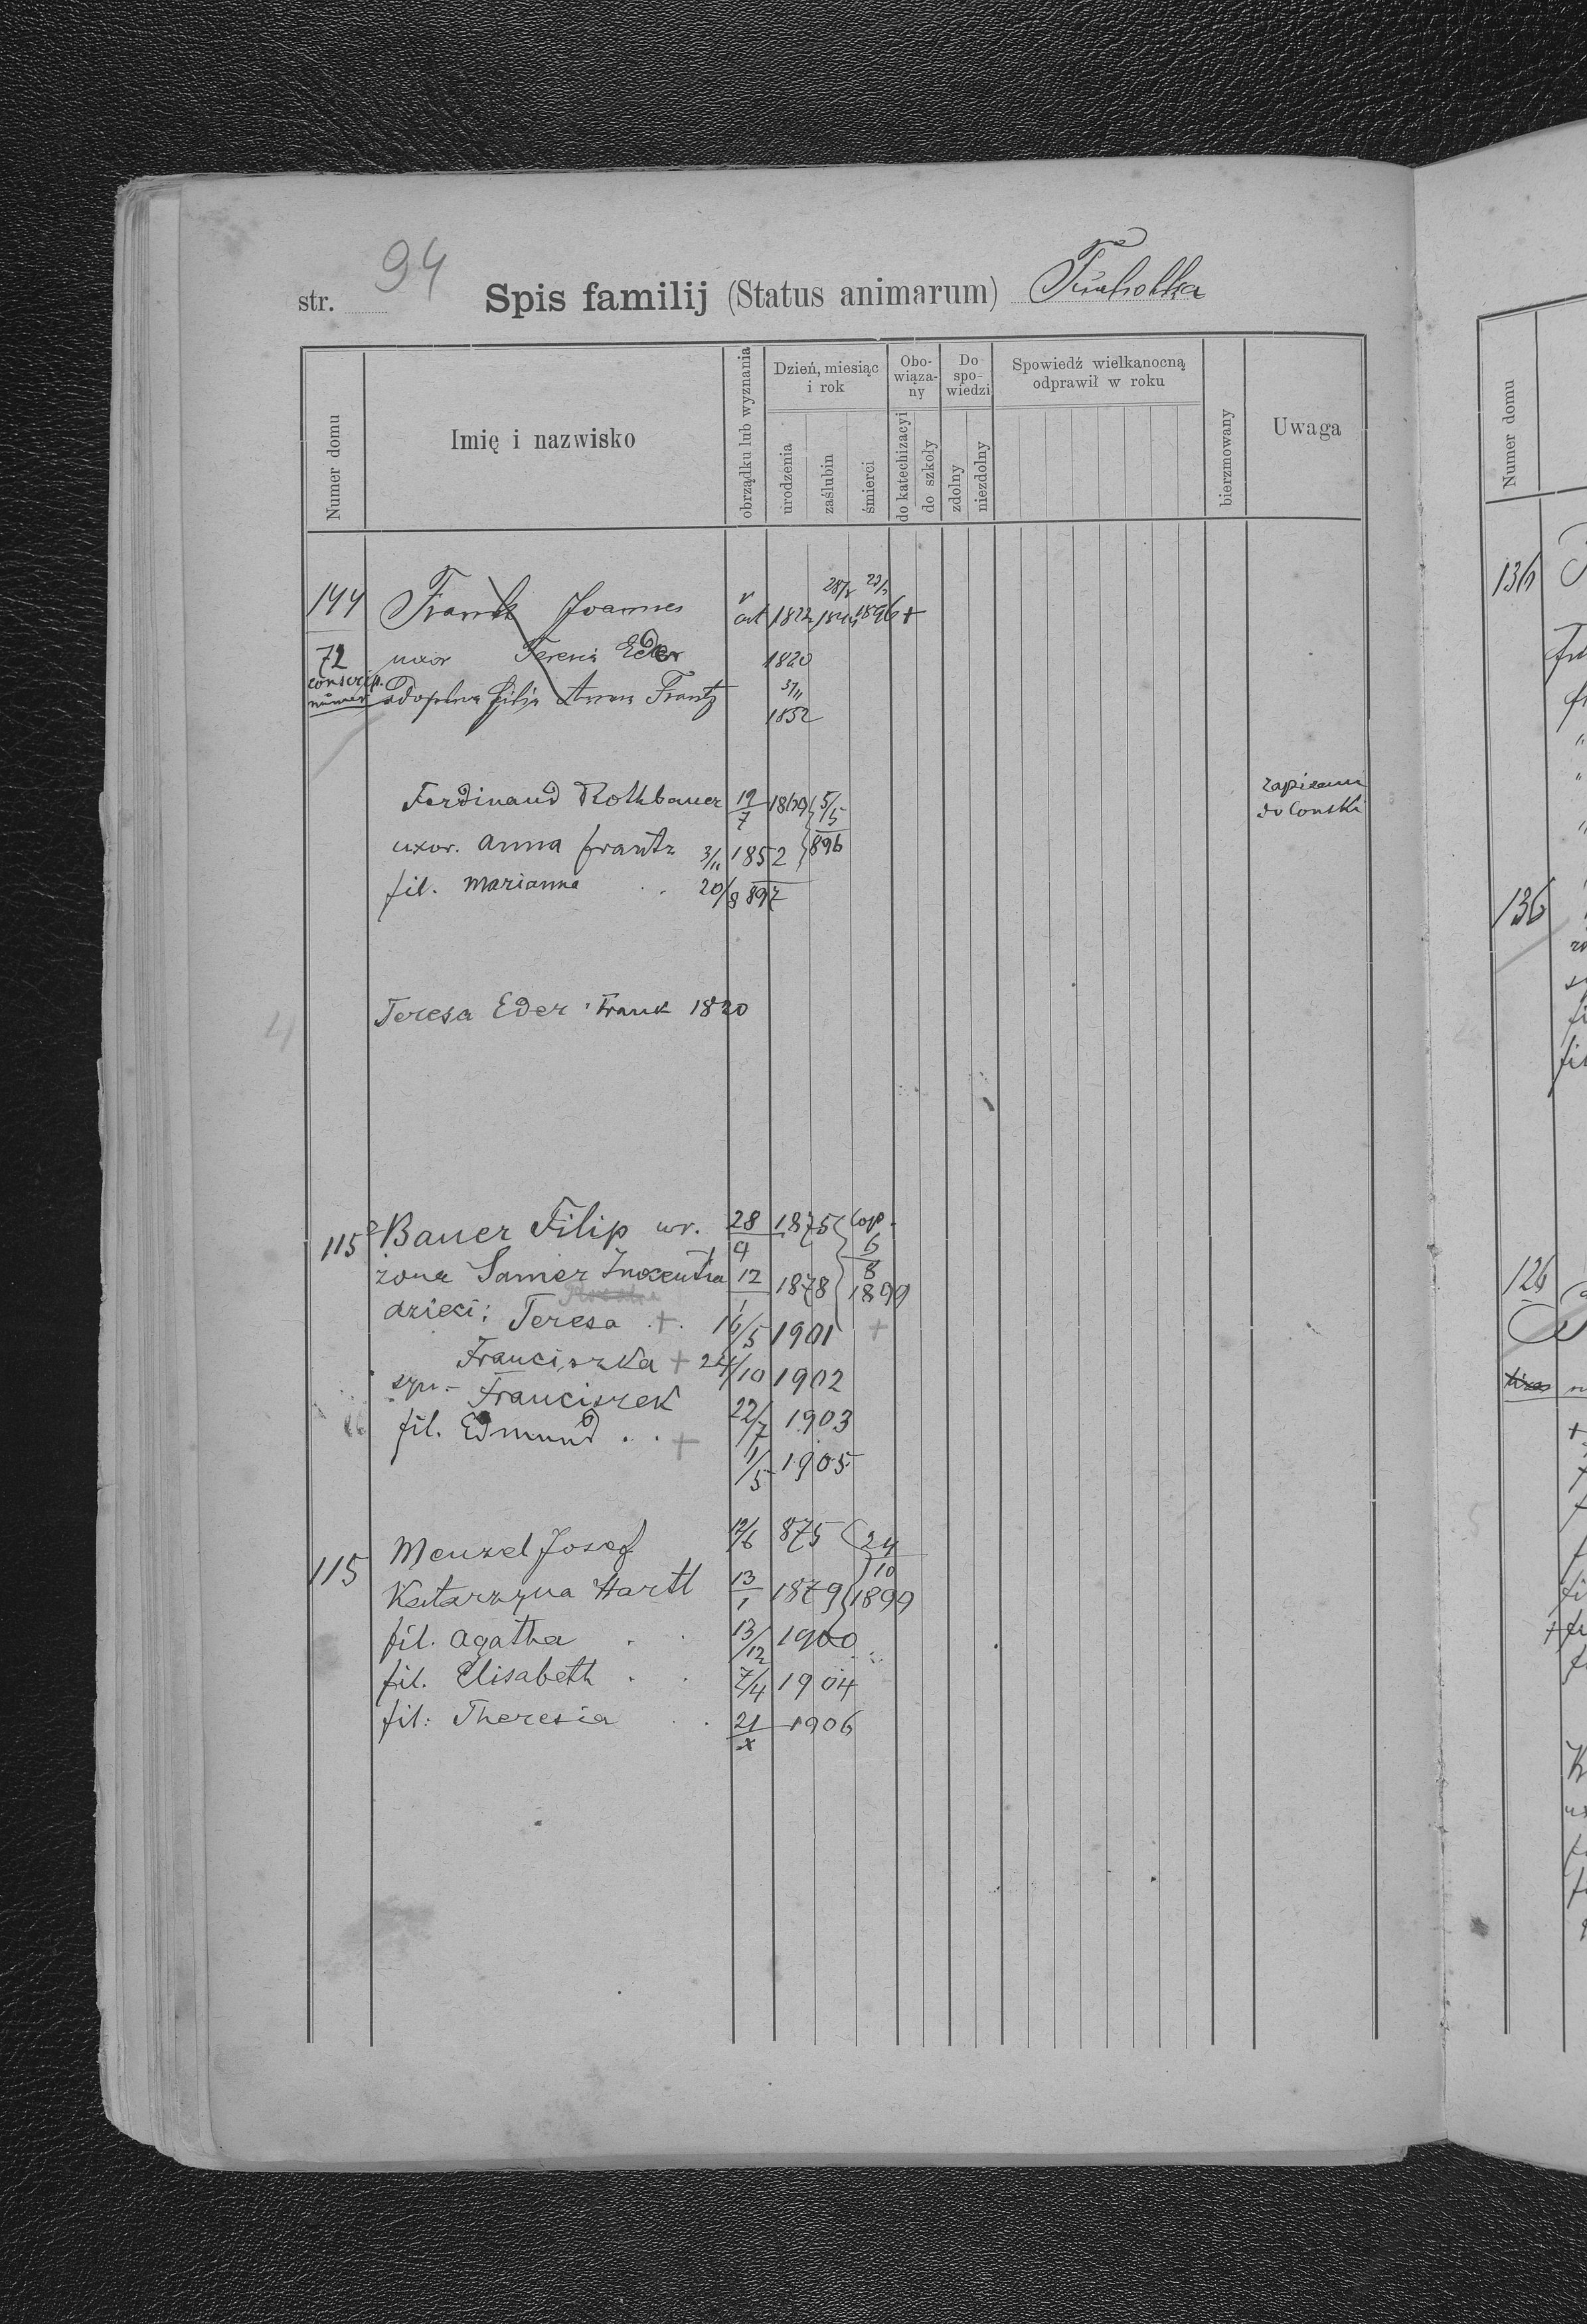 94
str. Spis familij (Status animarum) Tucholka
Numer domu
Imię i nazwisko
obrządku lub wyznania
Dzień, miesiąc i rok
urodzenia
zaślubin
śmierci
Obo-wiąza-ny
do katechizacyi
do szkoły
Do spo-wiedzi
zdolny
niezdolny
Spowiedź wielkanocną odprawił w roku
bierzmowany
Uwaga
144 Frank Joannes 1822 1896 +
72 uxor Teresia Eder 1820
conscrip. numer adoptiva filia Anna Frantz 3/11 1852
Ferdinand Rothbauer 19/7 1869 5/5 896
uxor. Anna Frantz 3/11 1852
fil. Marianna 20/8 897
Teresa Eder Frank 1820
115 Bauer Filip wr. 28/9 1875 cop. 6/8 1899
żona Samer Inocentia 12/1 1878
dzieci: Teresa + 16/5 1901 +
Franciszka + 24/10 1902
syn - Franciszek 22/7 1903
fil. Edmund . . + 1/5 1905
115 Menzel Josef 12/6 875 24/10 1899
Katarzyna Hartl 13/1 1879
fil. Agatha . . 13/12 1900
fil. Elisabeth . . 7/4 1904
fil: Theresia . . 21/x 1906
Numer domu
136
136
126